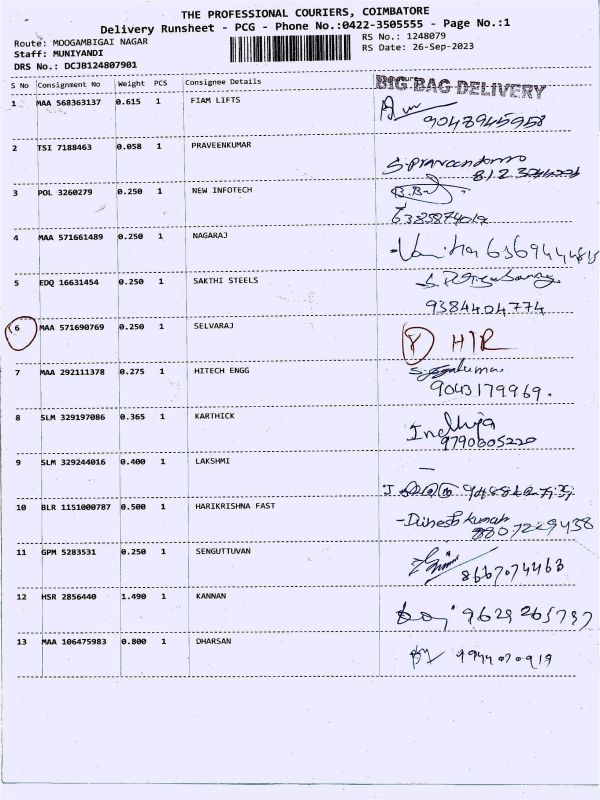 THE PROFESSIONAL COURIERS, COIMBATORE
Delivery Runsheet - PCG - Phone No.:0422-3505555 - Page No.:1
Route: MOOGAMBIGAI NAGAR
RS No.: 1248079
Staff: MUNIYANDI
RS Date: 26-Sep-2023
DRS No.: DCJB124807901
S No Consignment No Weight PCS Consignee Details
BIG BAG DELIVERY
1 MAA 568363137 0.615 1 FIAM LIFTS
9047945958
2 TSI 7188463 0.058 1 PRAVEENKUMAR
3 POL 3260279 0.250 1 NEW INFOTECH
4 MAA 571661489 0.250 1 NAGARAJ
5 EDQ 16631454 0.250 1 SAKTHI STEELS
9384404774
6 MAA 571690769 0.250 1 SELVARAJ
7 MAA 292111378 0.275 1 HITECH ENGG
9043179969.
8 SLM 329197086 0.365 1 KARTHICK
9790605220
9 SLM 329244016 0.400 1 LAKSHMI
10 BLR 1151000787 0.500 1 HARIKRISHNA FAST
-Dinesh kumar
8807229438
11 GPM 5283531 0.250 1 SENGUTTUVAN
8667074463
12 HSR 2856440 1.490 1 KANNAN
9629265797
13 MAA 106475983 0.800 1 DHARSAN
9944070919